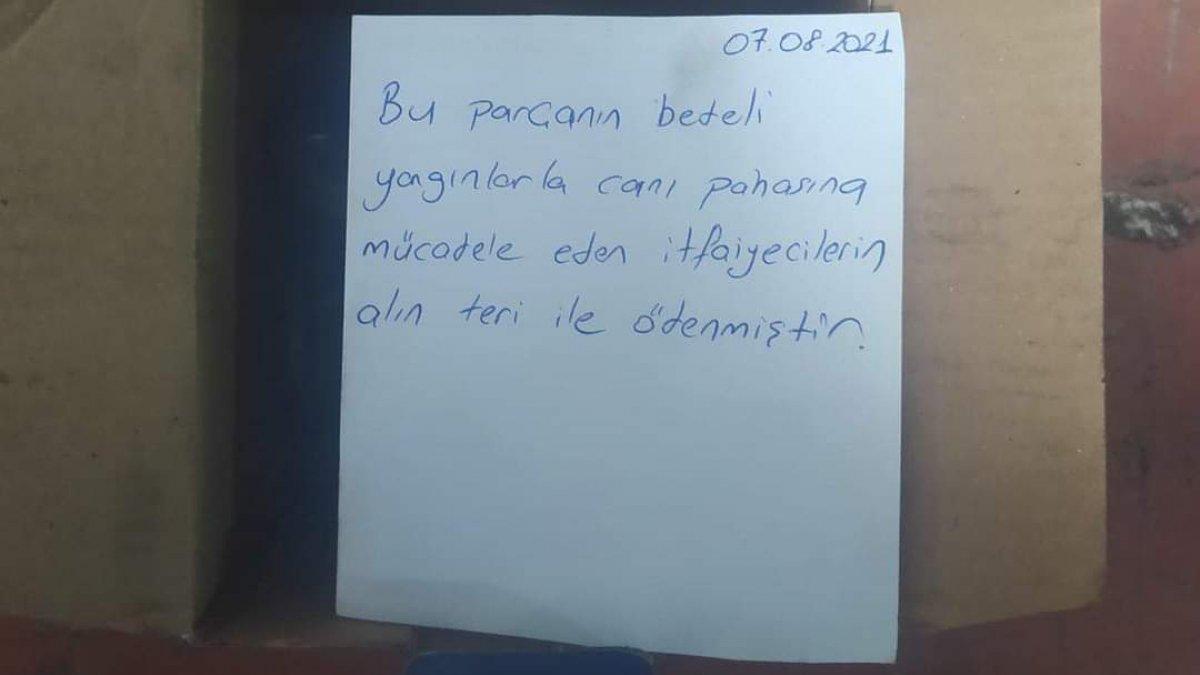 07.08.2021
Bu parçanın bedeli
yagınlarla canı pahasına
mücadele eden itfaiyecilerin
alın teri ile ödenmiştir.